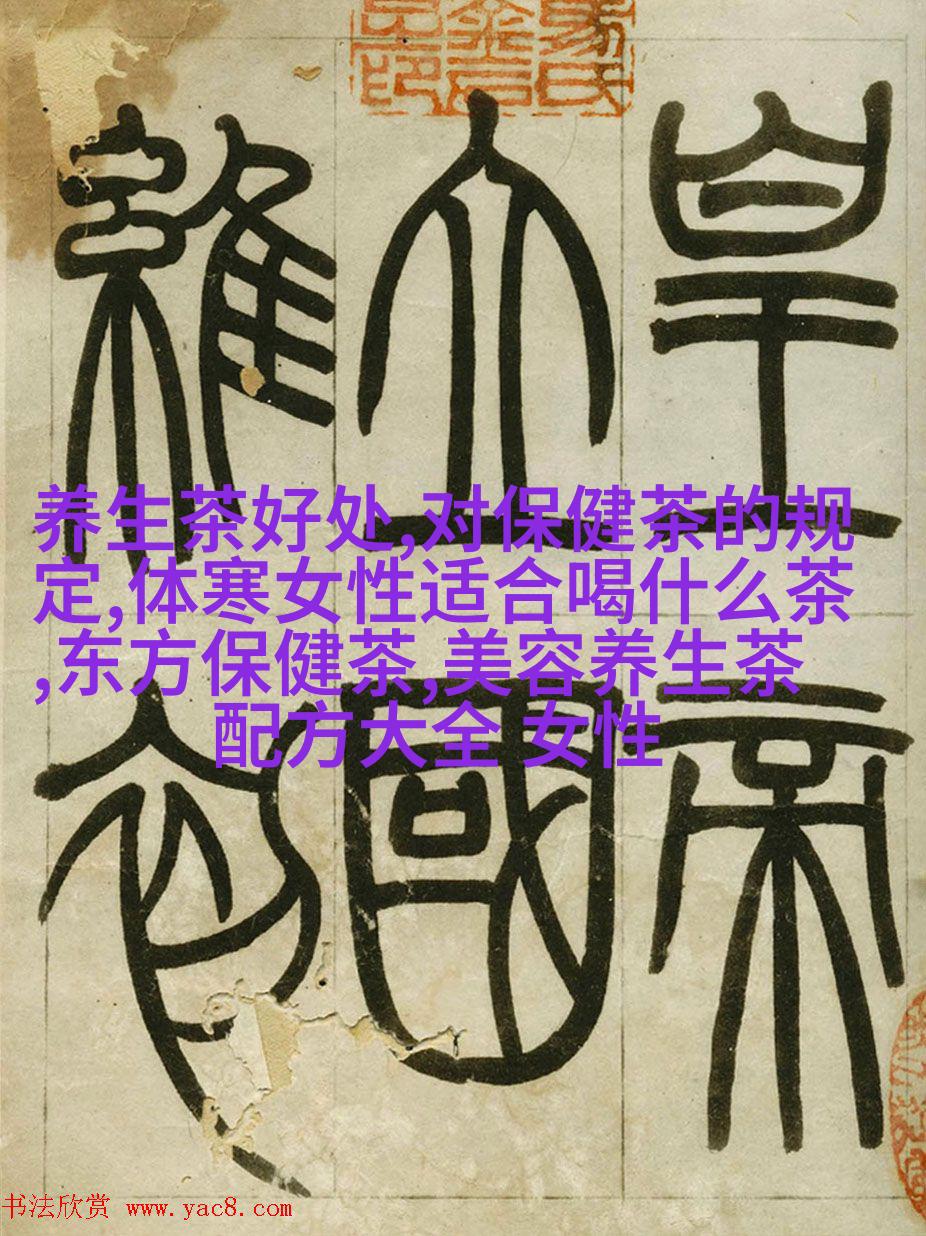 皇帝
立國
維初
养生茶好处,对保健茶的规
定,体寒女性适合喝什么茶
,东方保健茶,美容养生茶
配方大全 女性
书法欣赏 www.yac8.com